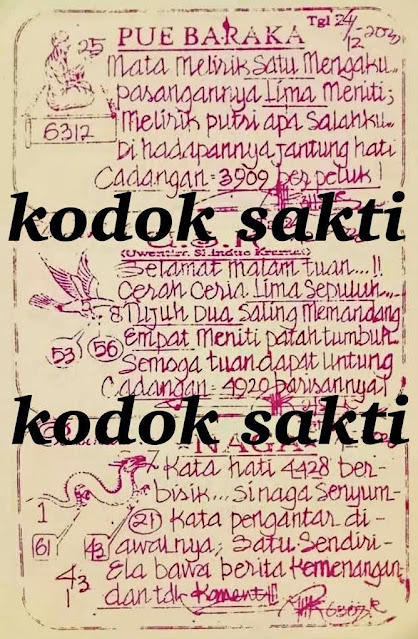 Tgl 24/12-20
25 PUE BARAKA
Mata Melirik Satu Mengaku..
pasangannya Lima Meniti;
6312
Melirik putri apa Salahku..
Di hadapannya jantung hati
Cadangan = 3909 berpeluk!
kodok sakti
Selamat malam tuan...!!
Cerah Ceria Lima Sepuluh...
& Tujuh Dua Saling Memandang
53 56
Empat Meniti patah tumbuh..
Semoga tuan dapat untung
Cadangan = 4920 barisannya!
kodok sakti
NAGA
Kata hati 4428 ber-
bisik... Sinaga Senyum-
1
21 Kata pengantar di-
61 42 awalnya, Satu Sendiri-
43 Ela bawa berita Kemenangan
1 dan tdk Koment!!